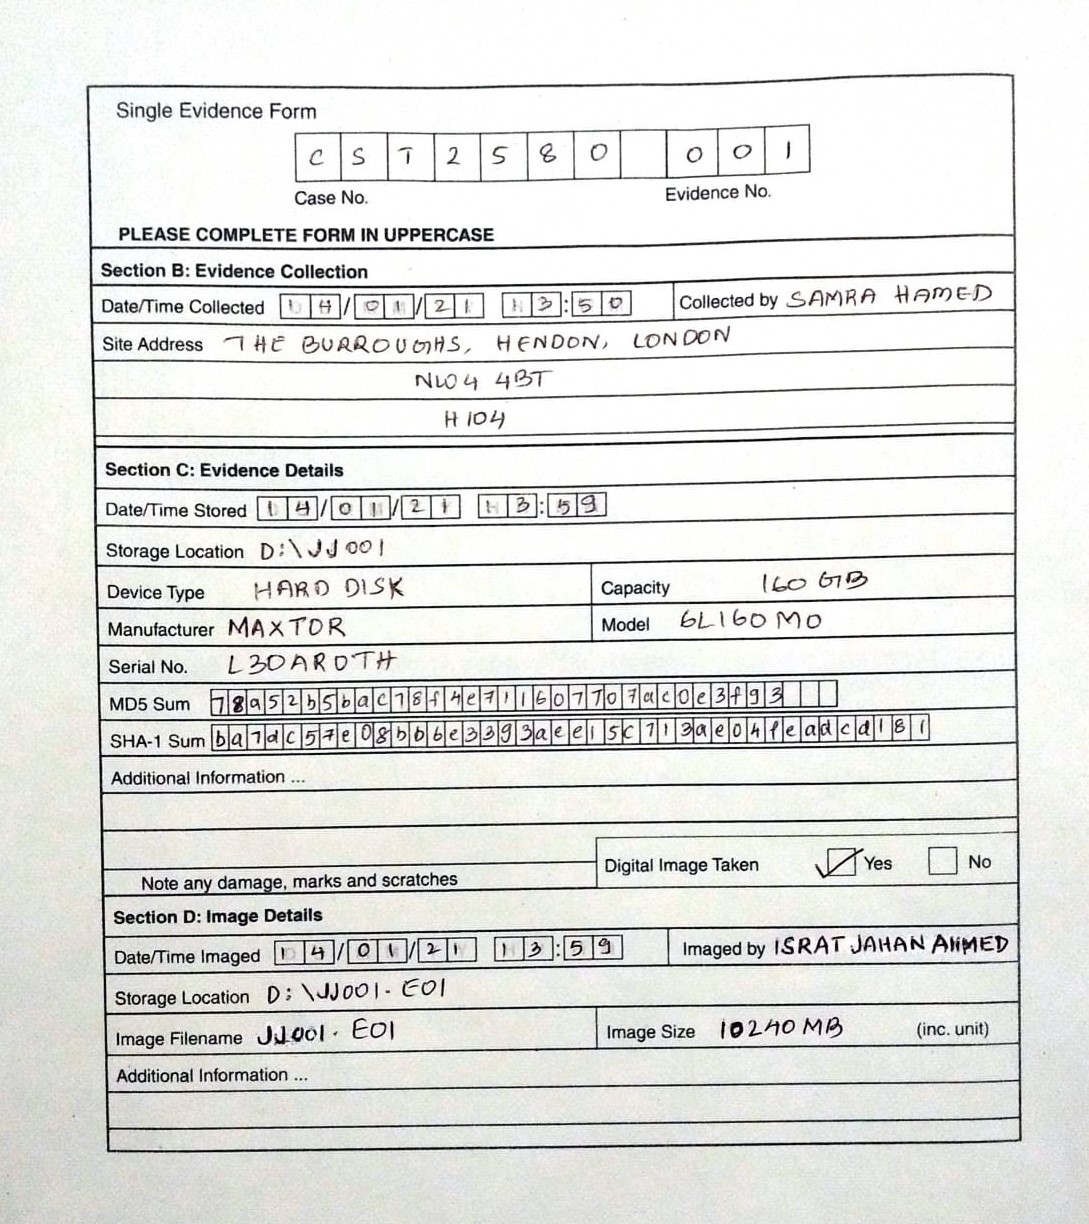 Single Evidence Form
C S T 2 5 8 0 0 0 1
Case No. Evidence No.
PLEASE COMPLETE FORM IN UPPERCASE
Section B: Evidence Collection
Date/Time Collected 14/01/21 13:50 Collected by SAMRA HAMED
Site Address THE BURROUGHS, HENDON, LONDON
NW04 4BT
H104
Section C: Evidence Details
Date/Time Stored 14/01/21 13:59
Storage Location D:\JJ001
Device Type HARD DISK Capacity 160 GB
Manufacturer MAXTOR Model 6L160M0
Serial No. L30AR0TH
MD5 Sum 78a52b5bac78f4e711607707ac0e3f93
SHA-1 Sum ba7dc57e08bbbe3393aee15c713ae04feadcd181
Additional Information ...
Digital Image Taken Yes No
Note any damage, marks and scratches
Section D: Image Details
Date/Time Imaged 14/01/21 13:59 Imaged by ISRAT JAHAN AHMED
Storage Location D:\JJ001.E01
Image Filename JJ001.E01 Image Size 10240MB (inc. unit)
Additional Information ...